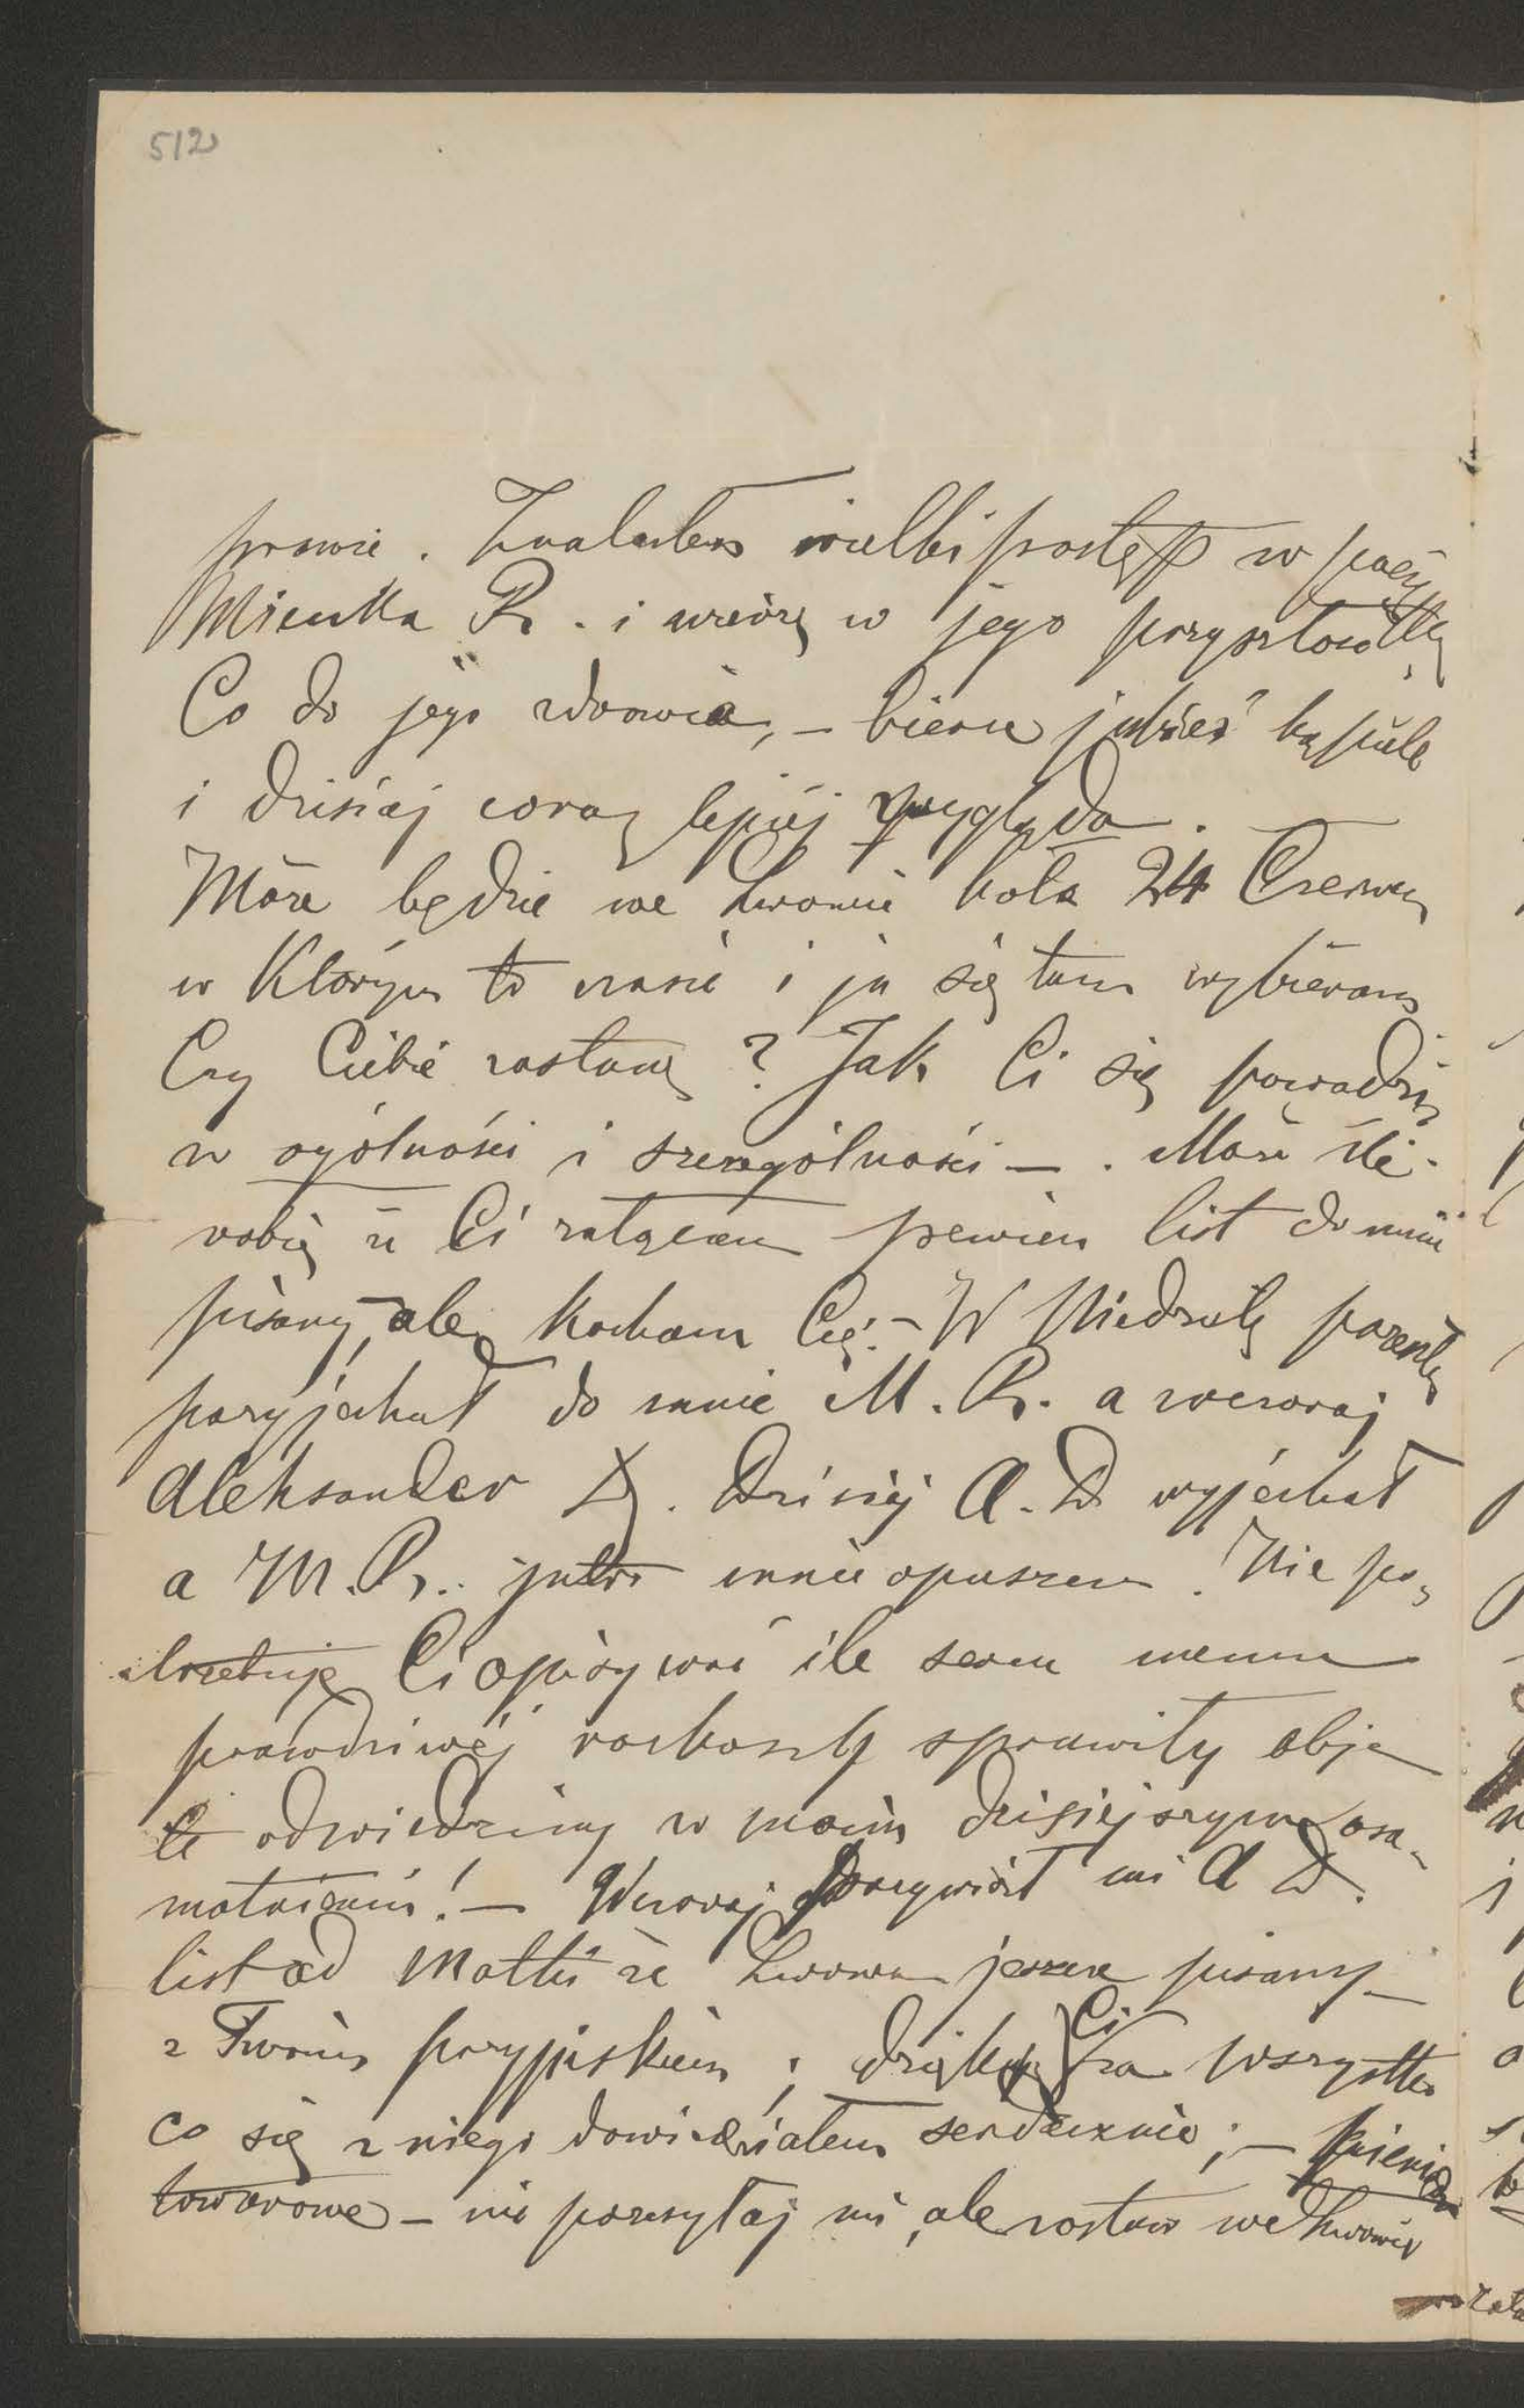 512
prawie. Znalazłem wielki postęp w poezyi
Miecia R. i wierzę w jego przyszłość
Co do jego zdrowia, – bierze jakieś kąpiele
i dzisiaj coraz lepiéj wygląda.
Może będzie we Lwowie koło 24 Czerwca
w którym to czasie i ja się tam wybieram
Czy Ciebie zastanę? Jak Ci się powodzi
w ogólności i szczególności – . Może źle
robię że Ci załączam pewien list do mnie
pisany, ale kocham Cię. – W Niedzielę
przyjechał do mnie M. R. a wczoraj
Aleksander D. Dzisiaj A. D. wyjechał
a M. R. jutro mnie opuszcza. Nie po-
trzebuję Ci opisywać ile sercu memu
prawdziwéj rozkoszy sprawiły obje
te odwiedziny w moim dzisiejszym osa-
motnieniu! – Wczoraj przywiózł mi A D.
list od Matki ze Lwowa jeszcze pisany
z Twoim przypiskiem; dziękuję Ci za wszystko
co się z niego dowiedziałem serdecznie; – pieniądze
towarowe – nie przesyłaj mi, ale zostaw we Lwowie